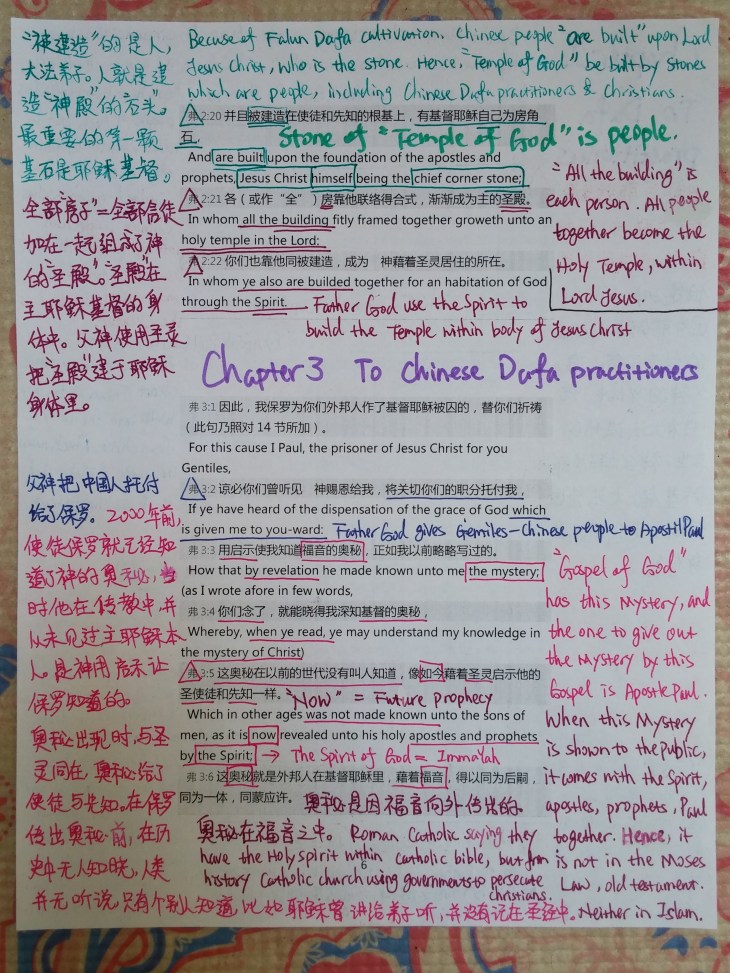 "被建造"的是人，
大法弟子。人就是建
造"神殿"的"石头"。
最重要的第一颗
基石是耶稣基督。
Becuse of Falun Dafa cultivation. Chinese people "are built" upon Lord
Jesus Christ, who is the stone. Hence, "Temple of God" be built by stones
which are people, including Chinese Dafa practitioners & Christians.
弗 2:20 并且被建造在使徒和先知的根基上，有基督耶稣自己为房角
石，
Stone of "Temple of God" is people.
And are built upon the foundation of the apostles and
prophets, Jesus Christ himself being the chief corner stone;
弗 2:21 各（或作"全"）房靠他联络得合式，渐渐成为主的圣殿。
In whom all the building fitly framed together groweth unto an
holy temple in the Lord:
弗 2:22 你们也靠他同被建造，成为 神藉着圣灵居住的所在。
In whom ye also are builded together for an habitation of God
through the Spirit.
Father God use the Spirit to
build the Temple within body of Jesus Christ
"All the building" is
each person. All people
together become the
Holy Temple, within
Lord Jesus.
全部"房子"=全部信徒
加在一起组成了神
的"圣殿"。"圣殿"在
主耶稣基督的身
体中。父神使用圣灵
把"圣殿"建于耶稣
身体里。
Chapter 3 To Chinese Dafa practitioners
弗 3:1 因此，我保罗为你们外邦人作了基督耶稣被囚的，替你们祈祷
（此句乃照对 14 节所加）。
For this cause I Paul, the prisoner of Jesus Christ for you
Gentiles,
弗 3:2 谅必你们曾听见 神赐恩给我，将关切你们的职分托付我，
If ye have heard of the dispensation of the grace of God which
is given me to you-ward:
Father God gives Gentiles-Chinese people to Apostil Paul
弗 3:3 用启示使我知道福音的奥秘，正如我以前略略写过的。
How that by revelation he made known unto me the mystery;
(as I wrote afore in few words,
弗 3:4 你们念了，就能晓得我深知基督的奥秘，
Whereby, when ye read, ye may understand my knowledge in
the mystery of Christ)
弗 3:5 这奥秘在以前的世代没有叫人知道，像如今藉着圣灵启示他的
圣使徒和先知一样。
"Now" = Future prophecy
Which in other ages was not made known unto the sons of
men, as it is now revealed unto his holy apostles and prophets
by the Spirit;
→ The Spirit of God = Immayah
弗 3:6 这奥秘就是外邦人在基督耶稣里，藉着福音，得以同为后嗣，
同为一体，同蒙应许。
奥秘是因福音向外传出的。
奥秘在福音之中。 Roman Catholic saying they
have the Holy spirit within catholic bible, but from
history Catholic church using governments to persecute
christians.
6
父神把中国人托付
给了保罗。2000年前，
使徒保罗就已经知
道了神的奥秘，当
时他在传教中，并
从未见过主耶稣本
人。是神用启示让
保罗知道的。
奥秘出现时，与圣
灵同在，奥秘给了
使徒与先知。在保罗
传出奥秘前，在历
史中无人知晓，人类
并无听说，只有个别人知道，比如耶稣曾讲给弟子听，并没有记在圣经中。
"Gospel of God"
has this Mystery, and
the one to give out
the Mystery by this
Gospel is Apostle Paul.
When this Mystery
is shown to the public,
it comes with the Spirit,
apostles, prophets, Paul
together. Hence, it
is not in the Moses
Law, old testament.
Neither in Islam.